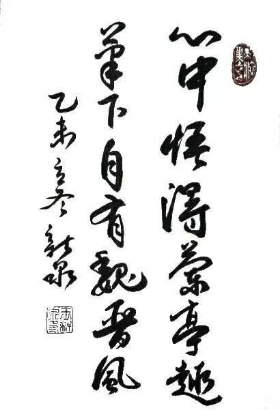 心中悟得兰亭趣
笔下自有魏晋风
乙未立冬 新泉